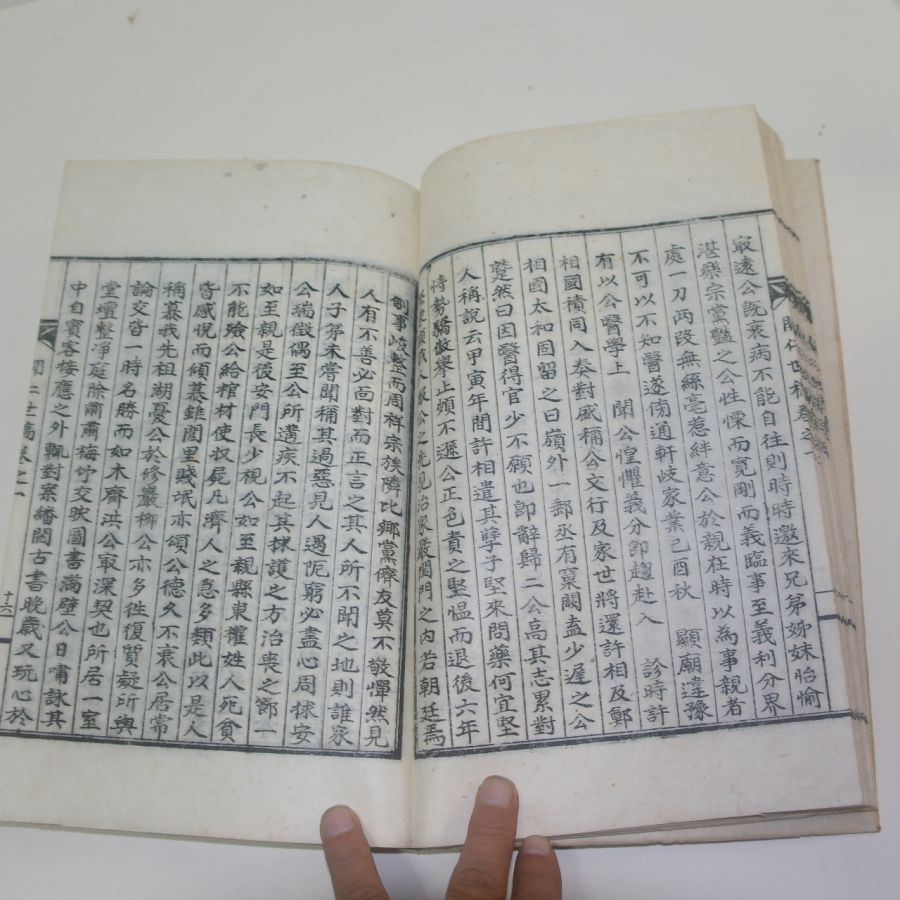 㝡遠公旣衰病不能自往則時時邀來兄弟姊妹怡愉
湛樂宗黨豔之公性慄而寬剛而義臨事至義利分界
處一刀兩段無絲毫惹絆意公於親在時以為事親者
不可以不知醫遂傍通軒岐家業己酉秋 顯廟違豫
有以公醫學上 聞公惶懼義分卽趨赴入 診時許
相國積同入奏對威稱公文行及家世將還許相及鄭
相國太和固留之曰嶺外一郵丞有窠闕盍少遲之公
蹙然曰因醫得官少不願也卽辭歸二公高其志累對
人稱說云甲寅年間許相遣其孼子堅來問藥何宜堅
恃勢驕傲擧止頗不遜公正色責之堅慍而退後六年
人服公之先見治家嚴閨門之內若朝廷焉
制事峻整而周祥宗族隣比鄉黨儕友莫不敬憚然見
人有不善必面對而正言之其人所不聞之地則誰家
人子弟未嘗聞稱其過惡見人遇阨窮必盡心周捄安
公瑞徵偶至公所遘疾不起其捄護之方治喪之節一
如至親是後安門長少視公如至親縣東權姓人死貧
不能殮公給棺材使収屍凡濟人之急多類此以是人
皆感悅而傾慕雖閭里賤氓亦頌公德久不衰公居常
稱慕我先祖湖憂公於修巖柳公亦多徃復質疑所與
論交皆一時名勝而如木齋洪公㝡深契也所居一室
堂壇整淨庭除肅肅梅竹交映圖書滿壁公日嘯詠其
中自賓客接應之外輒對案繙閱古書晚歲又玩心於
世稿卷之
十六